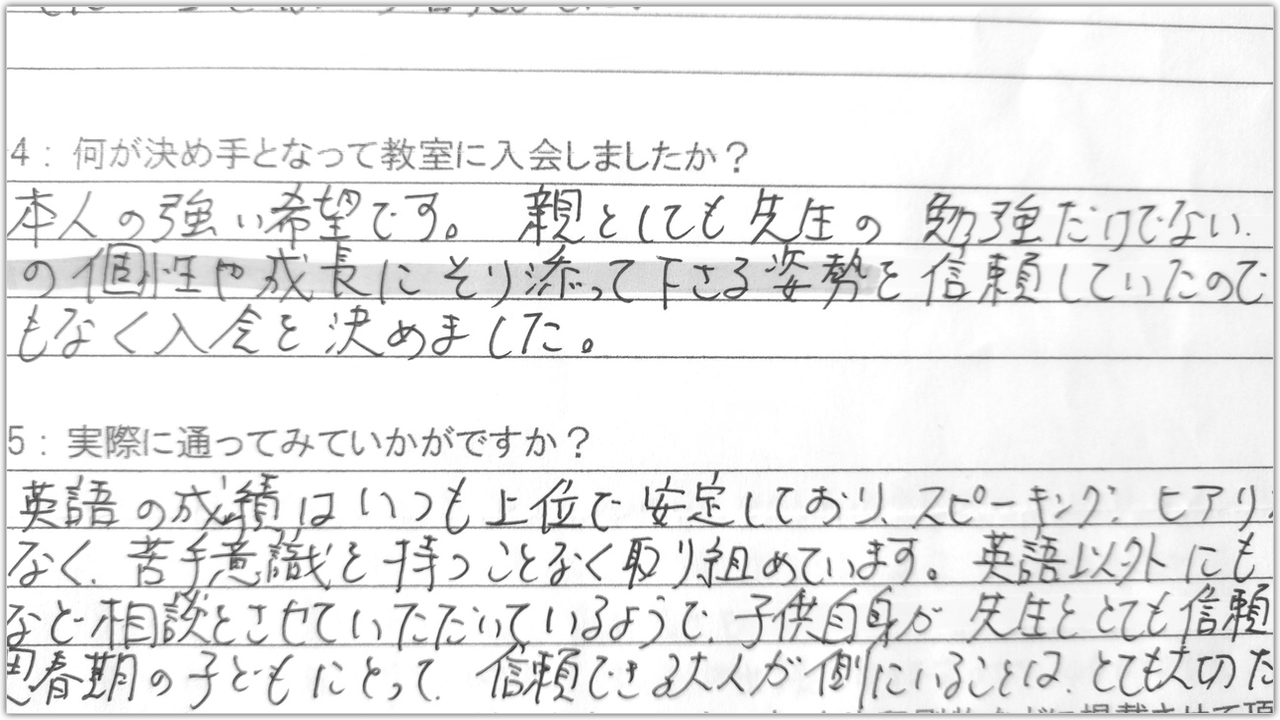 4：何が決め手となって教室に入会しましたか？
本人の強い希望です。 親としても先生の 勉強だけでない.
の個性や成長にそり添って下さる姿勢を信頼していたので
もなく入会を決めました。
5：実際に通ってみていかがですか？
英語の成績はいつも上位で安定しており、スピーキング、ヒアリ
なく、苦手意識を持つことなく取り組めています。英語以外にも
など相談とさせていただいているようで、子供自身が 先生ととても信頼
思春期の子どもにとって、信頼できる大人が側にいることは、とても大切だ